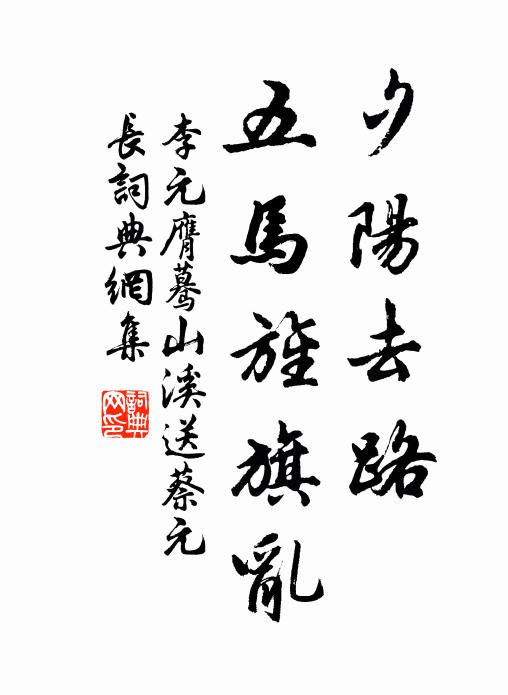 夕陽去路
五馬旌旗亂
李元膺驀山溪送蔡元
長詞典網集
詞典網印